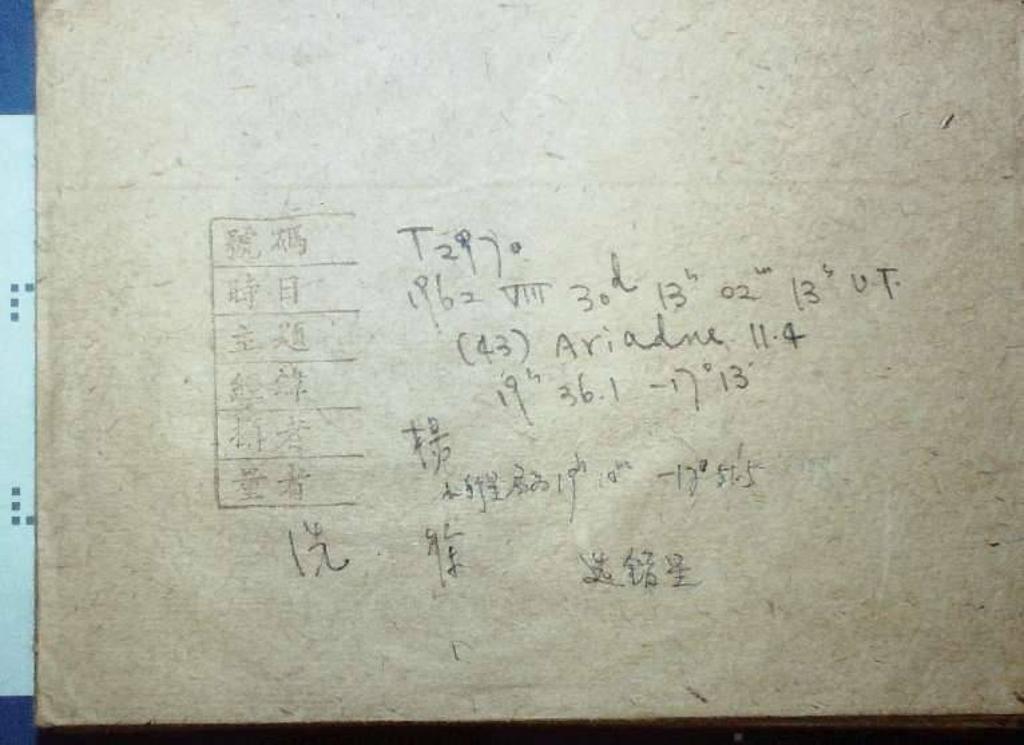 號碼 T2970
時日 1962 VIII 30d 13h 02m 13s U.T.
主題 (43) Ariadne 11.4
經緯 19h 36.1 -17°13'
攝者 楊
量者 小行星应为19h 10m -17°51'.5
洗 徐 选错星